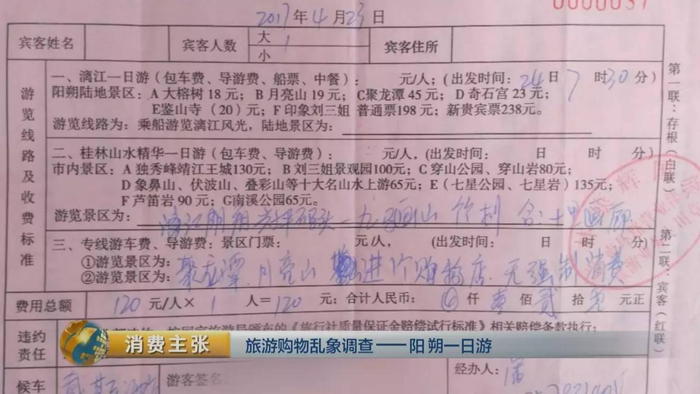 0000037
2017年4月23日
宾客姓名 宾客人数 大 1 小 宾客住所
游览线路及收费标准
一、漓江一日游（包车费、导游费、船票、中餐）： 元/人，（出发时间：24日7时30分）
阳朔陆地景区：A大榕树18元；B月亮山19元；C聚龙潭45元；D奇石宫23元；
E鉴山寺（20）元；F印象刘三姐 普通票198元；新贵宾票238元。
游览线路为：乘船游览漓江风光，陆地景区为：
二、桂林山水精华一日游（包车费、导游费）： 元/人，（出发时间： 日 时 分）
市内景区：A独秀峰靖江王城130元；B刘三姐景观园100元；C穿山公园、穿山岩80元；
D象鼻山、伏波山、叠彩山等十大名山水上游65元；E（七星公园、七星岩）135元；
F芦笛岩90元；G南溪公园65元。
游览景区为：漓江 码头一九马画山 竹筏
三、专线游车费、导游费；景区门票： 元/人，（出发时间： 日 时 分）
①游览景区为：
②游览景区为：聚龙潭 月亮山 进1个购物店 无强制消费
费用总额 120元/人×1人=120元；合计人民币： 仟壹佰贰拾 元正
违约责任
《旅行社质量保证金赔偿试行标准》相关赔偿条款执行；
候车 游客签名 经办人：
第一联：存根（白联）
第二联：宾客（红联）
消费主张
旅游购物乱象调查——阳朔一日游